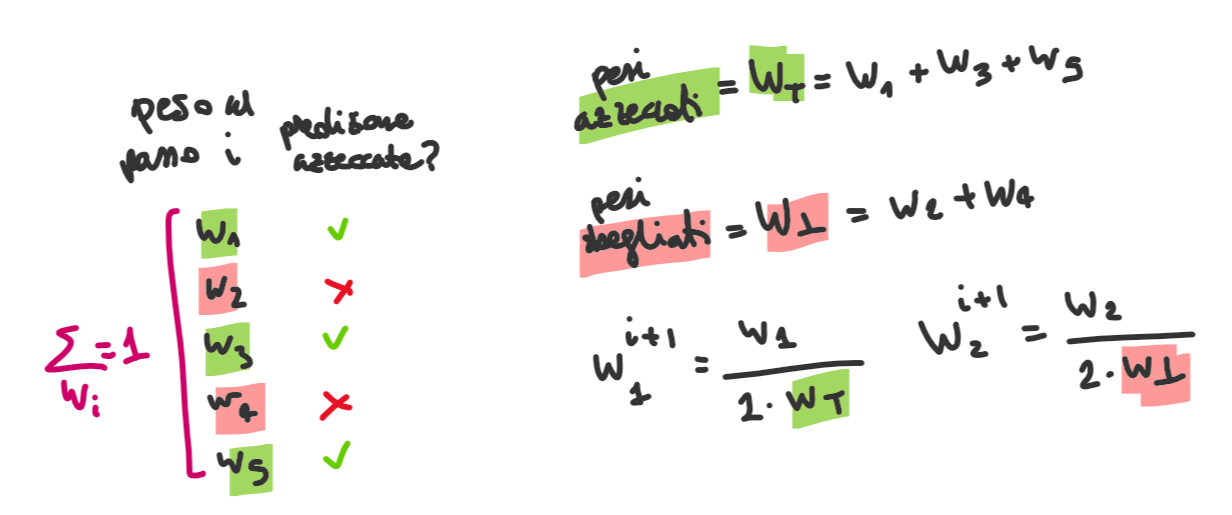 peso al
passo i
predizione
azzeccata?
w₁ ✓
w₂ ✗
w₃ ✓
w₄ ✗
w₅ ✓
∑ = 1
wᵢ
pesi
azzeccati = W_T = w₁ + w₃ + w₅
pesi
sbagliati = W_⊥ = w₂ + w₄
w₁^{i+1} = w₁ / (2 · W_T)
w₂^{i+1} = w₂ / (2 · W_⊥)